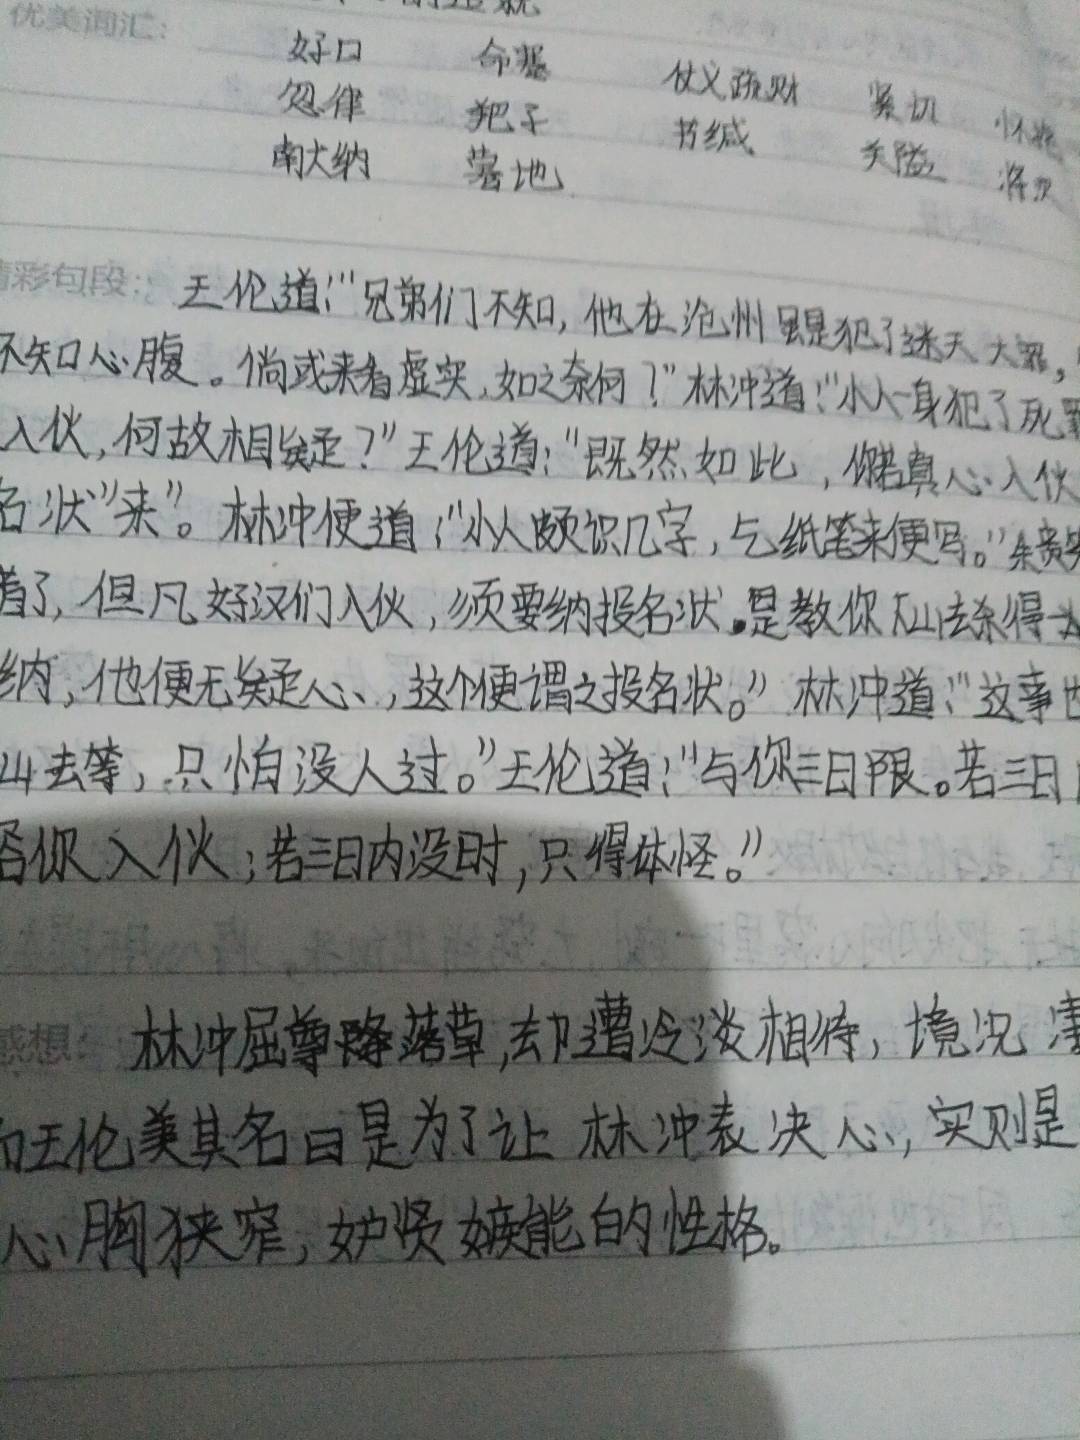 优美词汇:
好口 命蹇 仗义疏财 紧切
忽律 靶子 书缄 关隘
南大纳 蓦地 将次
精彩句段: 王伦道:“兄弟们不知,他在沧州虽是犯了迷天大罪,
不知心腹。倘或来看虚实,如之奈何?”林冲道:“小人一身犯了死罪
入伙,何故相疑?”王伦道:“既然如此,你若真心入伙
名状”来”。林冲便道:“小人颇识几字,乞纸笔来便写。”朱贵笑
着了,但凡好汉们入伙,须要纳投名状。是教你下山去杀得
纳,他便无疑心,这个便谓之投名状。”林冲道:“这事也
山去等,只怕没人过。”王伦道:“与你三日限。若三日内
容你入伙;若三日内没时,只得休怪。”
感想: 林冲屈尊降落草,却遭冷淡相待,境况凄
而王伦美其名曰是为了让林冲表决心,实则是
心胸狭窄,妒贤嫉能的性格。